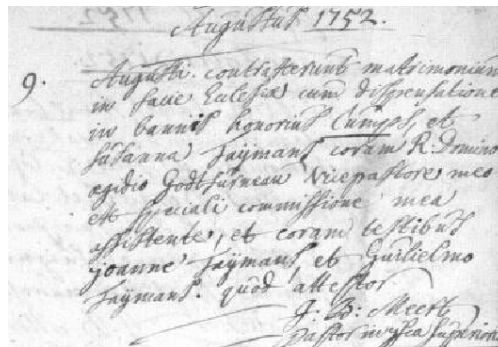 Augustus 1752.
9. Augusti contraxerunt matrimonium
in facie Ecclesiæ cum dispensatione
in bannis honorius Cumps, et
susanna Faÿmans coram R: Domino
egidio Godtfurneau vicepastore meo
ex speciali commissione mea
assistente, et coram testibus
joanne Faÿmans et Guilielmo
Faÿmans. quod attestor
J. B: Meert
pastor in superiori